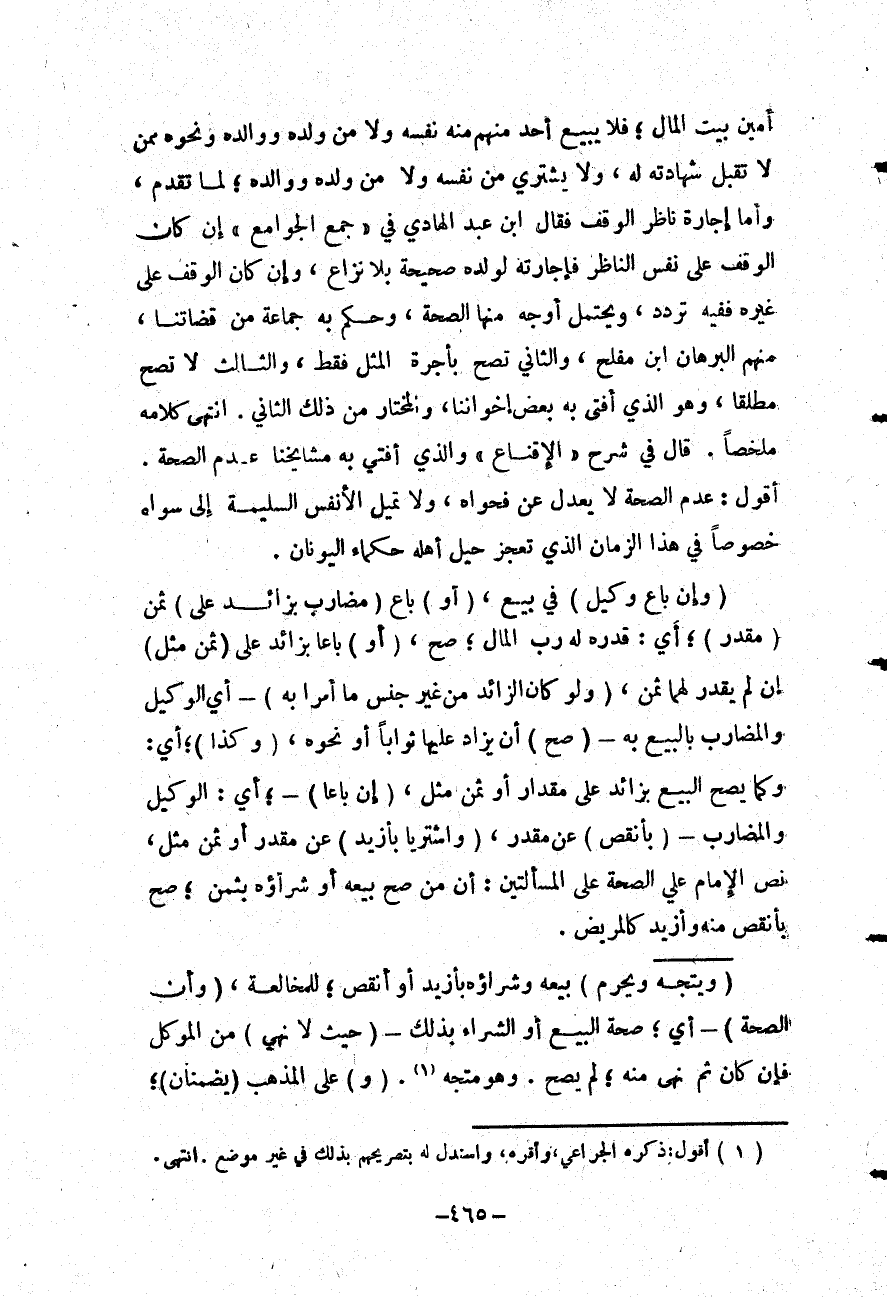 أمين بيت المال ؛ فلا يبيع أحد منهم منه نفسه ولا من ولده ووالده ونحوه ممن
لا تقبل شهادته له ، ولا يشتري من نفسه ولا من ولده ووالده ؛ لما تقدم ،
وأما إجارة ناظر الوقف فقال ابن عبد الهادي في « جمع الجوامع » إن كان
الوقف على نفس الناظر فإجارته لولده صحيحة بلا نزاع ، وإن كان الوقف على
غيره ففيه تردد ، ويحتمل أوجه منها الصحة ، وحكم به جماعة من قضاتنا ،
منهم البرهان ابن مفلح ، والثاني تصح بأجرة المثل فقط ، والثالث لا تصح
مطلقا ، وهو الذي أفتى به بعض إخواننا، والمختار من ذلك الثاني . انتهى كلامه
ملخصاً . قال في شرح « الإقناع » والذي أفتي به مشايخنا عدم الصحة .
أقول : عدم الصحة لا يعدل عن فحواه ، ولا تميل الأنفس السليمة إلى سواه
خصوصاً في هذا الزمان الذي تعجز حيل أهله حكماء اليونان .
( وإن باع وكيل ) في بيع ، ( أو ) باع ( مضارب بزائد على ) ثمن
( مقدر ) ؛ أي : قدره له رب المال ؛ صح ، ( أو ) باعا بزائد على (ثمن مثل)
إن لم يقدر لهما ثمن ، ( ولو كان الزائد من غير جنس ما أمرا به ) – أي الوكيل
والمضارب بالبيع به – ( صح ) أن يزاد عليها ثواباً أو نحوه ، ( وكذا )؛أي:
وكما يصح البيع بزائد على مقدار أو ثمن مثل ، ( إن باعا ) – ؛ أي : الوكيل
والمضارب – ( بأنقص ) عن مقدر ، ( واشتريا بأزيد ) عن مقدر أو ثمن مثل،
نص الإمام علي الصحة على المسألتين : أن من صح بيعه أو شرآؤه بثمن ؛ صح
بأنقص منه وأزيد كالمريض .
( ويتجه ويحرم ) بيعه وشراؤه بأزيد أو أنقص ؛ للمخالعة ، ( وأن
الصحة ) – أي ؛ صحة البيع أو الشراء بذلك – ( حيث لا نهي ) من الموكل
فإن كان ثم نهى منه ؛ لم يصح . وهو متجه (١) . ( و ) على المذهب (يضمنان)؛
( ١ ) أقول: ذكره الجراعي، وأقره، واستدل له بتصريحهم بذلك في غير موضع . انتهى.
–٤٦٥–